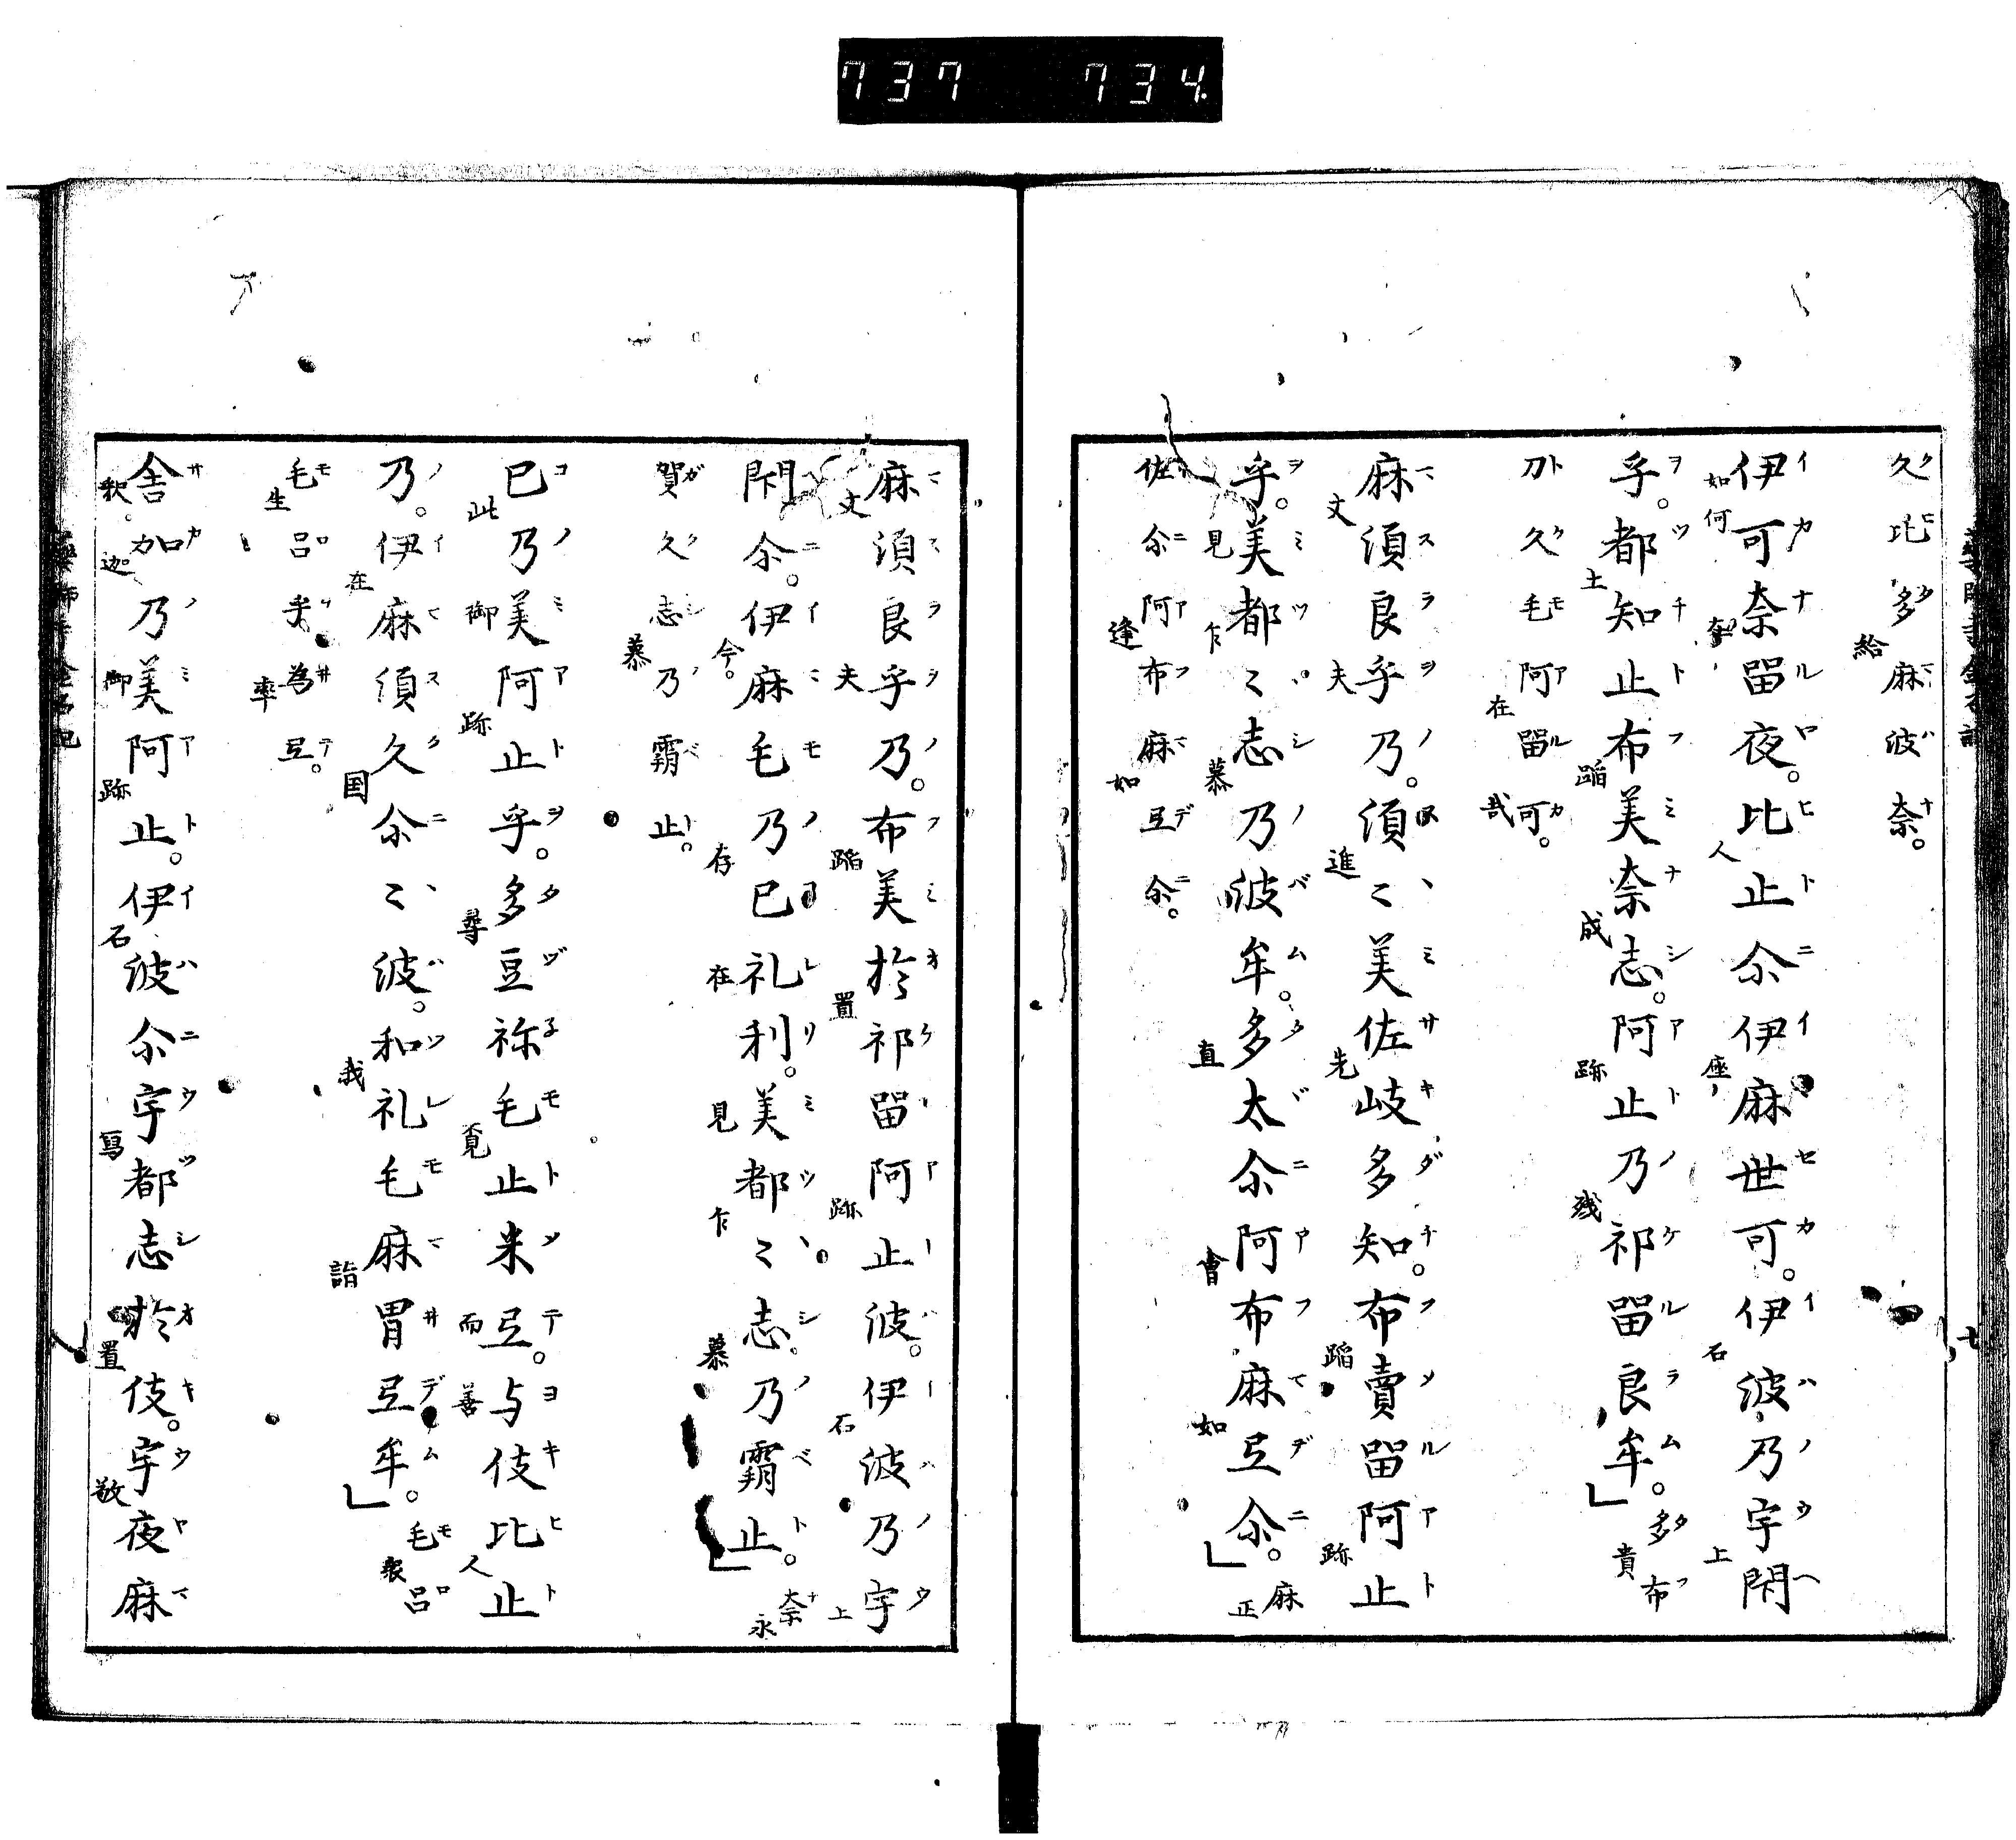 737 734
久比多麻波奈。
伊可奈留夜。比止尒伊麻世可。伊波乃宇閇
乎。都知止布美奈志。阿止乃祁留良牟。」多布
刀久毛阿留可。
麻須良乎乃。須〻美佐岐多知。布賣留阿止
乎。美都〻志乃波牟。多太尒阿布麻弖尒。」麻
佐尒阿布麻弖尒。
麻須良乎乃。布美於祁留阿止波。伊波乃宇
閇尒。伊麻毛乃已礼利。美都〻志乃覇止。」奈
賀久志乃覇止。
已乃美阿止乎。多豆祢毛止米弖。与伎比止
乃。伊麻須久尒〻波。和礼毛麻胃弖牟。」毛呂
毛呂乎為弖。
舎加乃美阿止。伊波尒宇都志於伎。宇夜麻